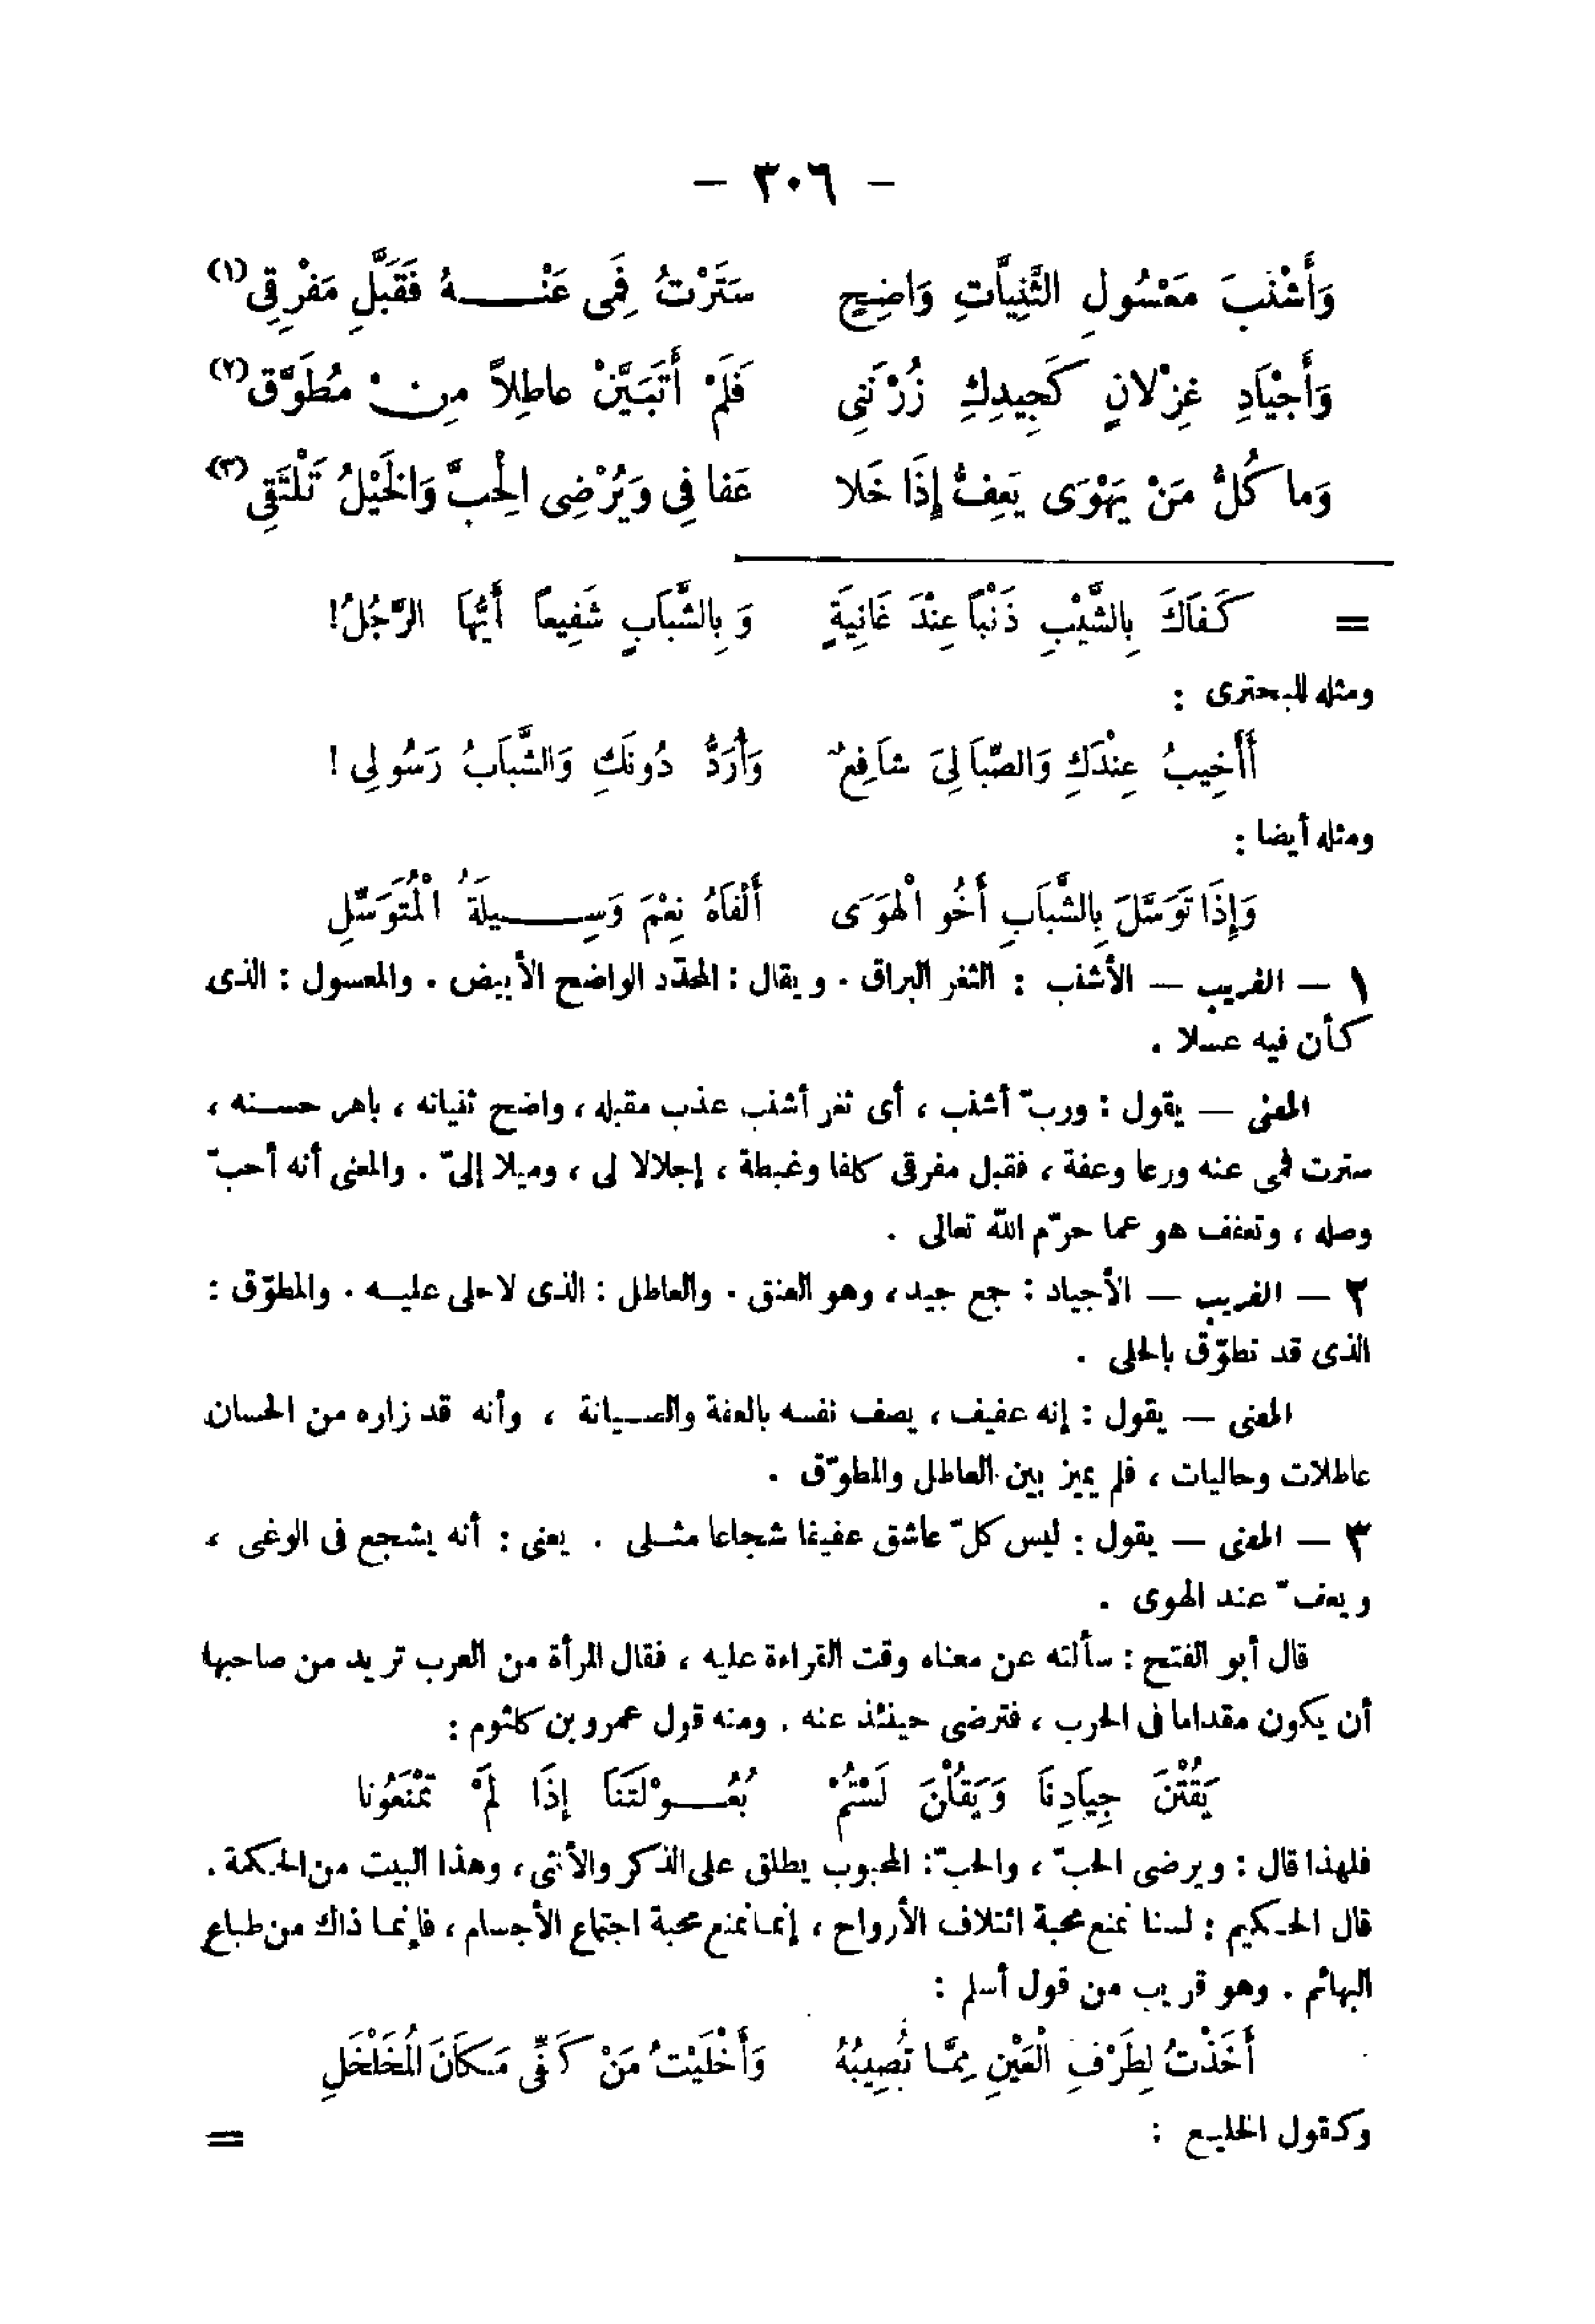 – ٣٠٦ –
وَأَشْنَبَ مَعْسُولِ الثَّنِيَّاتِ وَاضِحٍ سَتَرْتُ فَمِى عَنْهُ فَقَبَّلَ مَفْرِقِى (١)
وَأَجْيَادِ غِزْلانٍ كَجِيدِكِ زُرْنَنِى فَلَمْ أَتَبَيَّنْ عاطِلاً مِنْ مُطَوَّقِ (٢)
وَما كُلُّ مَنْ يَهْوَى يَعِفُّ إِذَا خَلا عَفا فِى وَيُرْضِى الْحِبَّ وَالخَيْلُ تَلْتَقِى (٣)
= كَفَاكَ بِالشَّيْبِ ذَنْباً عِنْدَ غَانِيَةٍ وَبِالشَّبَابِ شَفِيعاً أَيُّهَا الرَّجُلُ!
ومثله للبحترى :
أَأَخِيبُ عِنْدَكِ وَالصِّبَا لِىَ شَافِعٌ وَأُرَدُّ دُونَكِ وَالشَّبَابُ رَسُولِى !
ومثله أيضا :
وَإِذَا تَوَسَّلَ بِالشَّبَابِ أَخُو الْهَوَى أَلْفَاهُ نِعْمَ وَسِيلَةُ الْمُتَوَسِّلِ
١ – الغريب – الأشنب : الثغر البراق . ويقال : المحدّد الواضح الأبيض . والمعسول : الذى
كأن فيه عسلا .
المعنى – يقول : وربّ أشنب ، أى ثغر أشنب عذب مقبله ، واضح ثنياته ، باهر حسنه ،
سترت فمى عنه ورعا وعفة ، فقبل مفرقى كلفا وغبطة ، إجلالا لى ، وميلا إلىّ . والمعنى أنه أحبّ
وصله ، وتعفف هو عما حرّم الله تعالى .
٢ – الغريب – الأجياد : جمع جيد ، وهو العنق . والعاطل : الذى لا حلى عليه . والمطوّق :
الذى قد تطوّق بالحلى .
المعنى – يقول : إنه عفيف ، يصف نفسه بالعفة والصيانة ، وأنه قد زاره من الحسان
عاطلات وحاليات ، فلم يميز بين العاطل والمطوّق .
٣ – المعنى – يقول : ليس كلّ عاشق عفيفا شجاعا مثلى . يعنى : أنه يشجع فى الوغى ،
ويعفّ عند الهوى .
قال أبو الفتح : سألته عن معناه وقت القراءة عليه ، فقال المرأة من العرب تريد من صاحبها
أن يكون مقداما فى الحرب ، فترضى حينئذ عنه . ومنه قول عمرو بن كلثوم :
يَقُتْنَ جِيَادِنَا وَيَقُلْنَ لَسْتُمْ بُعُولَتَنَا إِذَا لَمْ تَمْنَعُونا
فلهذا قال : ويرضى الحبّ ، والحبّ : المحبوب يطلق على الذكر والأنثى ، وهذا البيت من الحكمة .
قال الحكيم : لسنا نمنع محبة ائتلاف الأرواح ، إنما نمنع محبة اجتماع الأجسام ، فإنما ذاك من طباع
البهائم . وهو قريب من قول أسلم :
أَخَذْتُ لِطَرْفِ الْعَيْنِ مِمَّا تُصِيبُهُ وَأَخْلَيْتُ مَنْ كَفِّى مَكَانَ الْمُخَلْخَلِ
وكقول الخليع : =